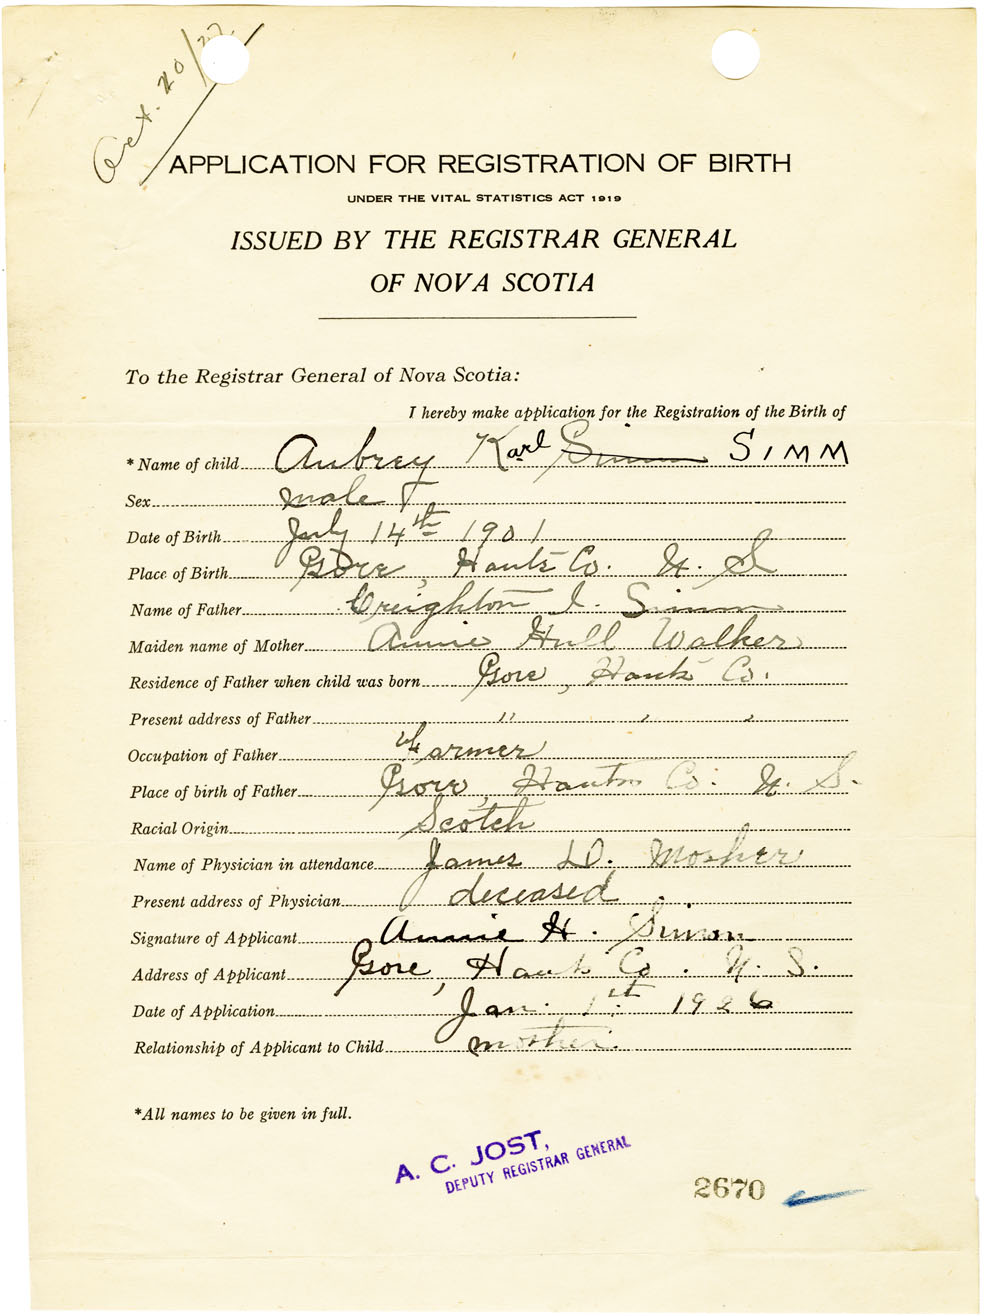 Oct. 20/22
APPLICATION FOR REGISTRATION OF BIRTH
UNDER THE VITAL STATISTICS ACT 1919
ISSUED BY THE REGISTRAR GENERAL
OF NOVA SCOTIA
To the Registrar General of Nova Scotia:
I hereby make application for the Registration of the Birth of
* Name of child Aubrey Karl Simm SIMM
Sex male
Date of Birth July 14th 1901
Place of Birth Gore, Hants Co. N. S
Name of Father Creighton I. Simm
Maiden name of Mother Annie Hull Walker
Residence of Father when child was born Gore, Hants Co.
Present address of Father " , ,
Occupation of Father Farmer
Place of birth of Father Gore, Hants Co. N. S.
Racial Origin Scotch
Name of Physician in attendance James D. Mosher
Present address of Physician deceased
Signature of Applicant Annie H. Simm
Address of Applicant Gore, Hants Co. N. S.
Date of Application Jan. 1st 1926
Relationship of Applicant to Child mother.
*All names to be given in full.
A. C. JOST,
DEPUTY REGISTRAR GENERAL
2670